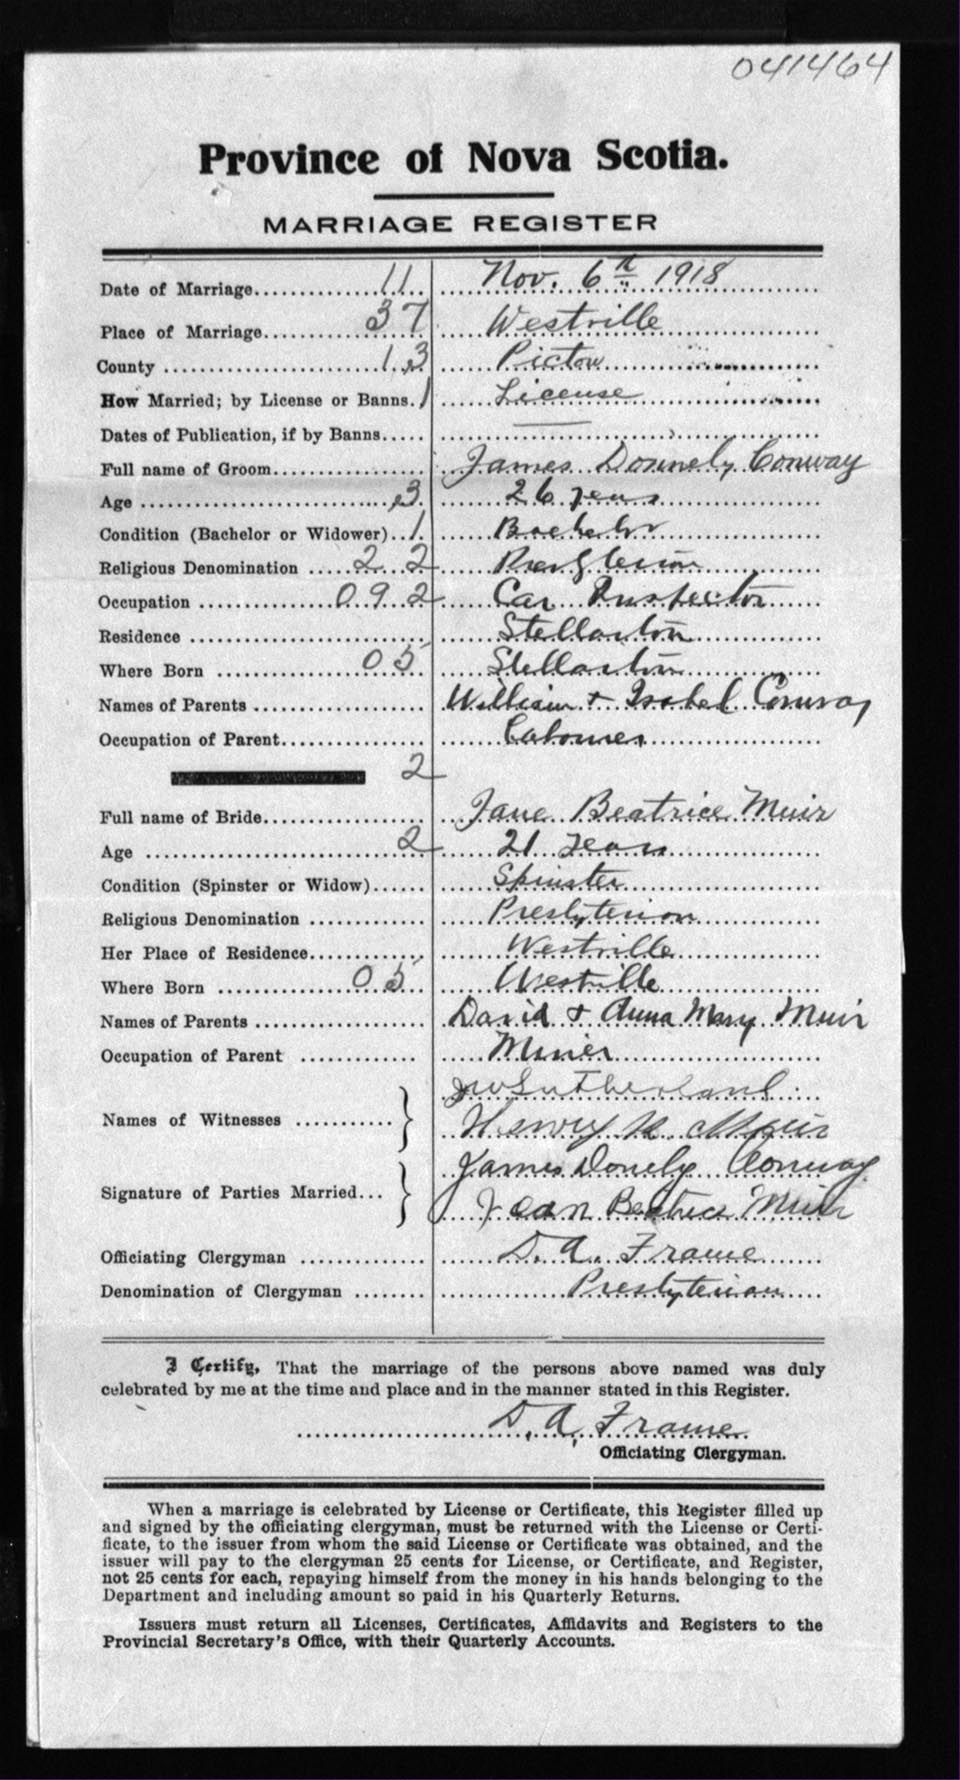 041464
Province of Nova Scotia.
MARRIAGE REGISTER
Date of Marriage 11 Nov. 6th 1918
Place of Marriage 37 Westville
County 1,3 Pictou
How Married; by License or Banns. 1 License
Dates of Publication, if by Banns —
Full name of Groom James Donnely Conway
Age 3 26 years
Condition (Bachelor or Widower) 1 Bachelor
Religious Denomination 2 2 Presbyterian
Occupation 0 9 2 Car Inspector
Residence Stellarton
Where Born 0 5 Stellarton
Names of Parents William & Isabel Conway
Occupation of Parent Labourer
2
Full name of Bride Jane Beatrice Muir
Age 2 21 years
Condition (Spinster or Widow) Spinster
Religious Denomination Presbyterian
Her Place of Residence Westville
Where Born 0 5 Westville
Names of Parents David & Anna Mary Muir
Occupation of Parent Miner
Names of Witnesses } JW Sutherland
Henry Muir
Signature of Parties Married... } James Donely Conway
Jean Beatrice Muir
Officiating Clergyman D. A. Frame
Denomination of Clergyman Presbyterian
I Certify, That the marriage of the persons above named was duly
celebrated by me at the time and place and in the manner stated in this Register.
D. A. Frame
Officiating Clergyman.
When a marriage is celebrated by License or Certificate, this Register filled up
and signed by the officiating clergyman, must be returned with the License or Certi-
ficate, to the issuer from whom the said License or Certificate was obtained, and the
issuer will pay to the clergyman 25 cents for License, or Certificate, and Register,
not 25 cents for each, repaying himself from the money in his hands belonging to the
Department and including amount so paid in his Quarterly Returns.
Issuers must return all Licenses, Certificates, Affidavits and Registers to the
Provincial Secretary's Office, with their Quarterly Accounts.